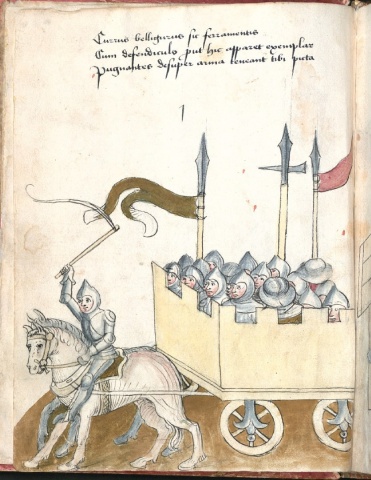 Currus belligerus sic ferramentis
Cum defendiculo put hic apparet exemplar
Pugnantes desuper arma teneant tibi picta